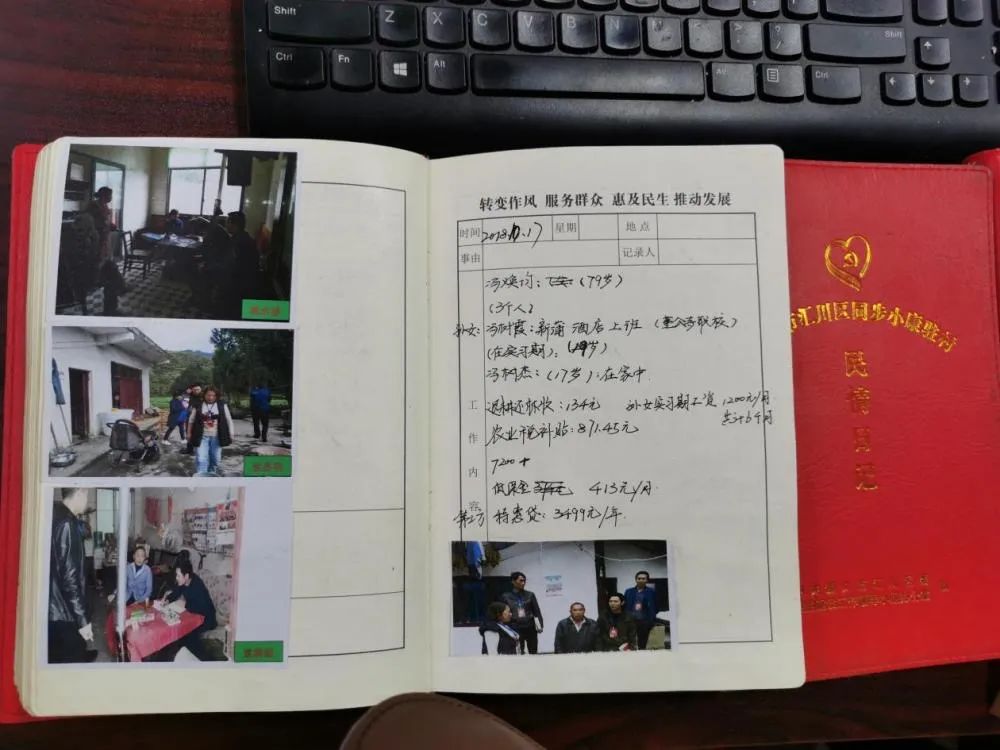 Shift
Z
X
C
V
B
N
M
Shift
Ctrl
Fn
Alt
Alt
Ctrl
转变作风 服务群众 惠及民生 推动发展
时间
2018.10.17
星期
地点
事由
记录人
冯焕均：（79岁）
（3个人）
孙女：冯树霞：新蒲酒店上班
（在实习期）：（19岁）
冯树杰：（17岁）：在家中
工作内容
退耕还林款：134元 孙女实习期工资1200元/月
共计6个月
农业税补贴：871.45元
7200
低保金 413元/月
特惠贷：3499元/年
汇川区同步小康驻村
民情日记